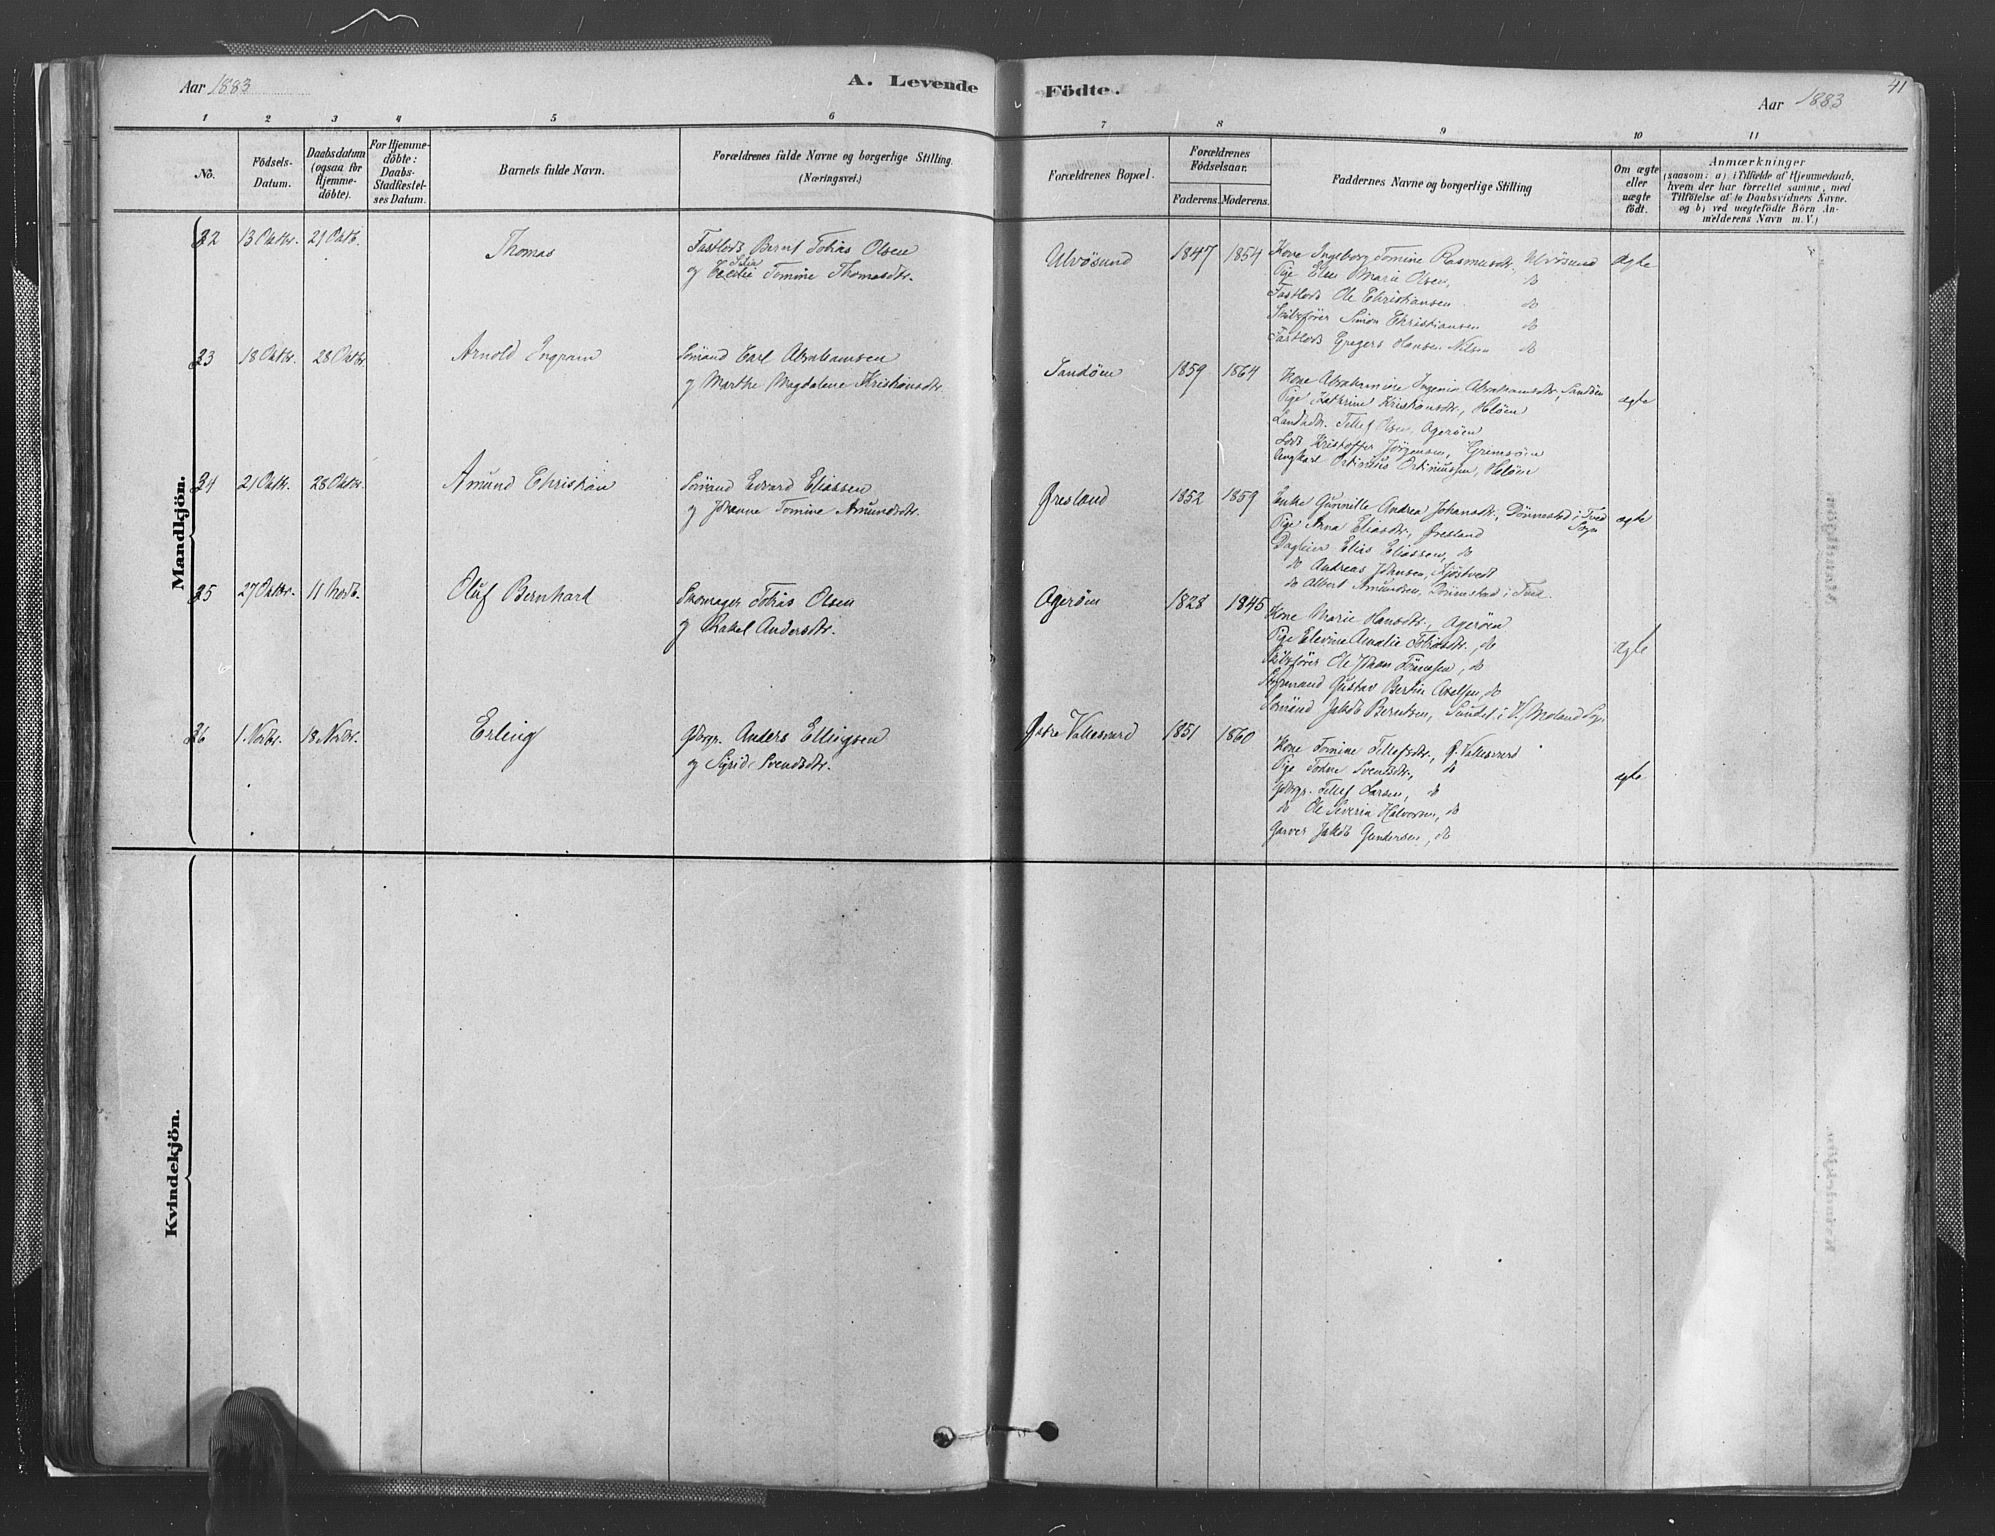 Aar 1883
A. Levende Födte.
Aar 1883
41
1 2 3 4 5 6 7 8 9 10 11
No.
Födsels-
Datum.
Daabsdatum
(ogsaa for
Hjemme-
döbte).
For Hjemme-
döbte:
Daabs-
Stadfæstel-
ses Datum.
Barnets fulde Navn.
Forældrenes fulde Navne og borgerlige Stilling.
(Næringsvei.)
Forældrenes Bopæl.
Forældrenes
Födselsaar.
Faderens. Moderens.
Faddernes Navne og borgerlige Stilling
Om ægte
eller
uægte
födt.
Anmærkninger
(saasom: a) i Tilfælde af Hjemmedaab,
hvem der har forrettet samme, med
Tilföielse af to Daabsvidners Navne.
og b) ved uægtefödte Börn An-
melderens Navn m. V.)
Mandkjön.
32 13 Oktbr. 21 Oktb. Thomas
Fastlods Bernt Tobias Olsen
og Tomine Thomasdtr.
Ulvøsund 1847 1854
Kone Ingeborg Tomine Rasmusdtr., Ulvøsund
Pige Elen Marie Olsen, do
Fastlods Ole Christiansen do
Skibsfører Simon Christiansen do
Fastlods Gregers Hansen Nilsen do
ægte
33 18 Oktbr. 28 Oktbr. Arnold Ingram
Sømand Carl Abrahamsen
og Marthe Magdalene Kristiansdtr.
Sandøen 1859 1864
Kone Abrahamine Ingenie Abrahamsdtr., Sandøen
Pige Kathrine Kristiansdtr., Heløen
Tellef Olsen, Agerøen
Lods Kristoffer Jørgensen, Grimsøen
Ungkarl Ortinius Ortiniussen, Heløen
ægte
34 21 Oktbr. 28 Oktbr. Amund Christian
Sømand Edvard Eliassen
og Johanne Tomine Amundsdtr.
Øresland 1852 1859
Enke Gunnille Andrea Johansdtr., Dønnestad i Tved
Sogn
Pige Anna Eliasdtr., Øresland
Dagleier Elias Eliassen, do
do Andreas Johnsen, Kjøstvedt
do Albert Amundsen, Dønnestad i Tved.
ægte
35 27 Oktbr. 11 Novb. Oluf Bernhard
Skomager Tobias Olsen
og Rakel Andersdtr.
Agerøen 1828 1845
Kone Marie Hansdtr., Agerøen
Pige Elevine Amalie Tobiasdtr., do
Skibsfører Ole Johan Tønnesen, do
Styrmand Gustav Bertin Axelsen, do
Sømand Jakob Berntsen, Sundet i V. Moland Sogn
ægte
36 1. Novbr. 18 Novbr. Erling
Gbrgr. Anders Ellingsen
og Sigrid Svendsdtr.
Østre Vallesverd 1851 1860
Kone Tomine Tellefsdtr., Ø. Vallesverd
Pige Todne Svendsdtr., do
Gbrgr. Tellef Larsen, do
do Ole Severin Halvorsen, do
Garver Jakob Gundersen, do
ægte
Kvindekjön.